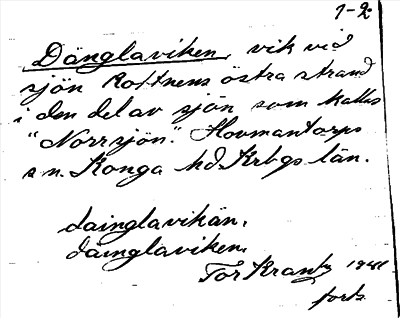 1-2
Dänglaviken, vik vid
sjön Rottnens östra strand
i den del av sjön som kallas
"Norrsjön". Hovmantorps
sn. Konga hd. Krbgs län.
dainglavikän.
dainglaviken.
Tor Krantz
forts